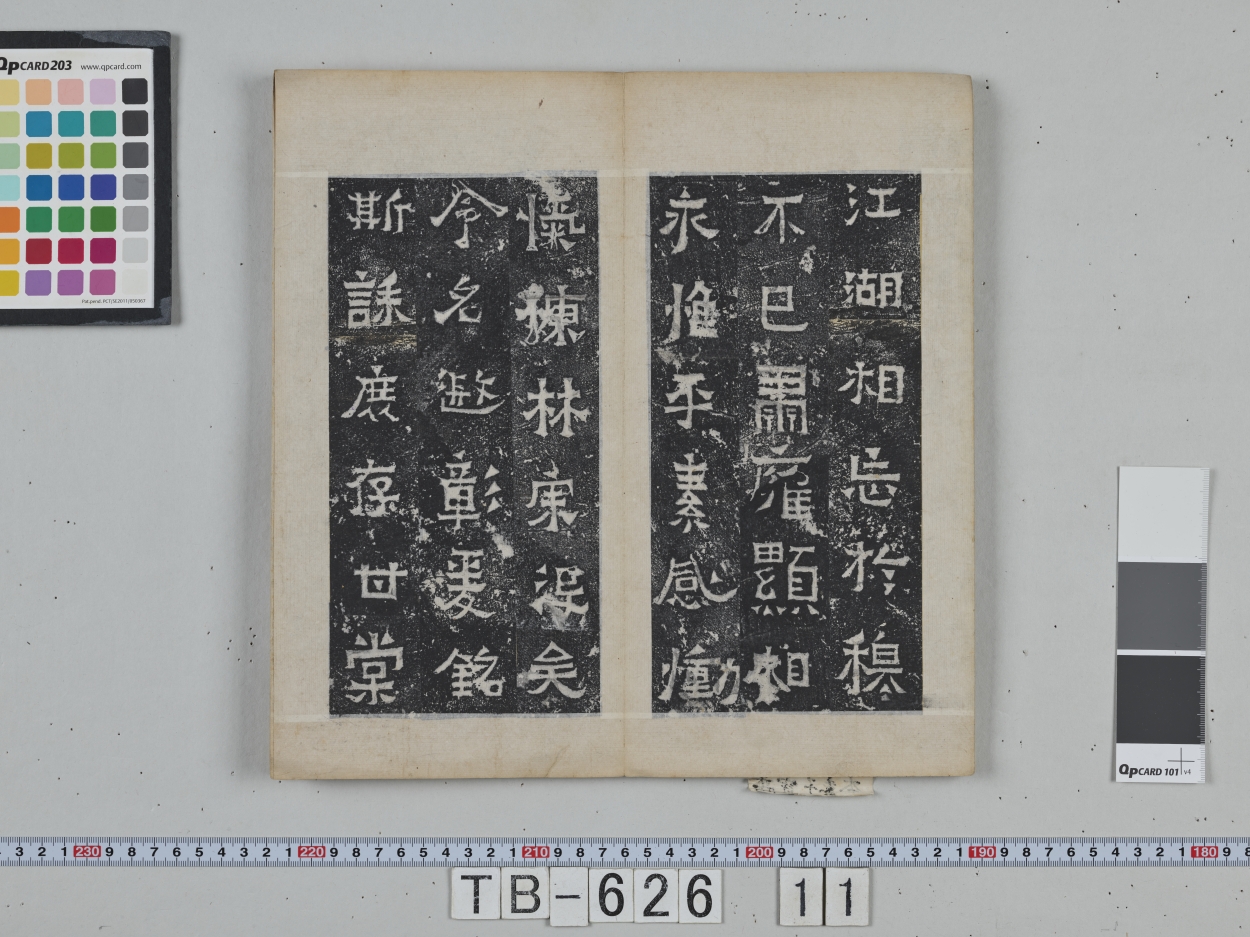 江湖相忘於穆
不已肅雍顯相
永惟平素感慟
林沒矣
令名彰爰銘
斯誄庶存甘棠
QpCARD 203 www.qpcard.com
QpCARD 101 v4
3 2 1 230 9 8 7 6 5 4 3 2 1 220 9 8 7 6 5 4 3 2 1 210 9 8 7 6 5 4 3 2 1 200 9 8 7 6 5 4 3 2 1 190 9 8 7 6 5 4 3 2 1 180 9 8
TB-626 11